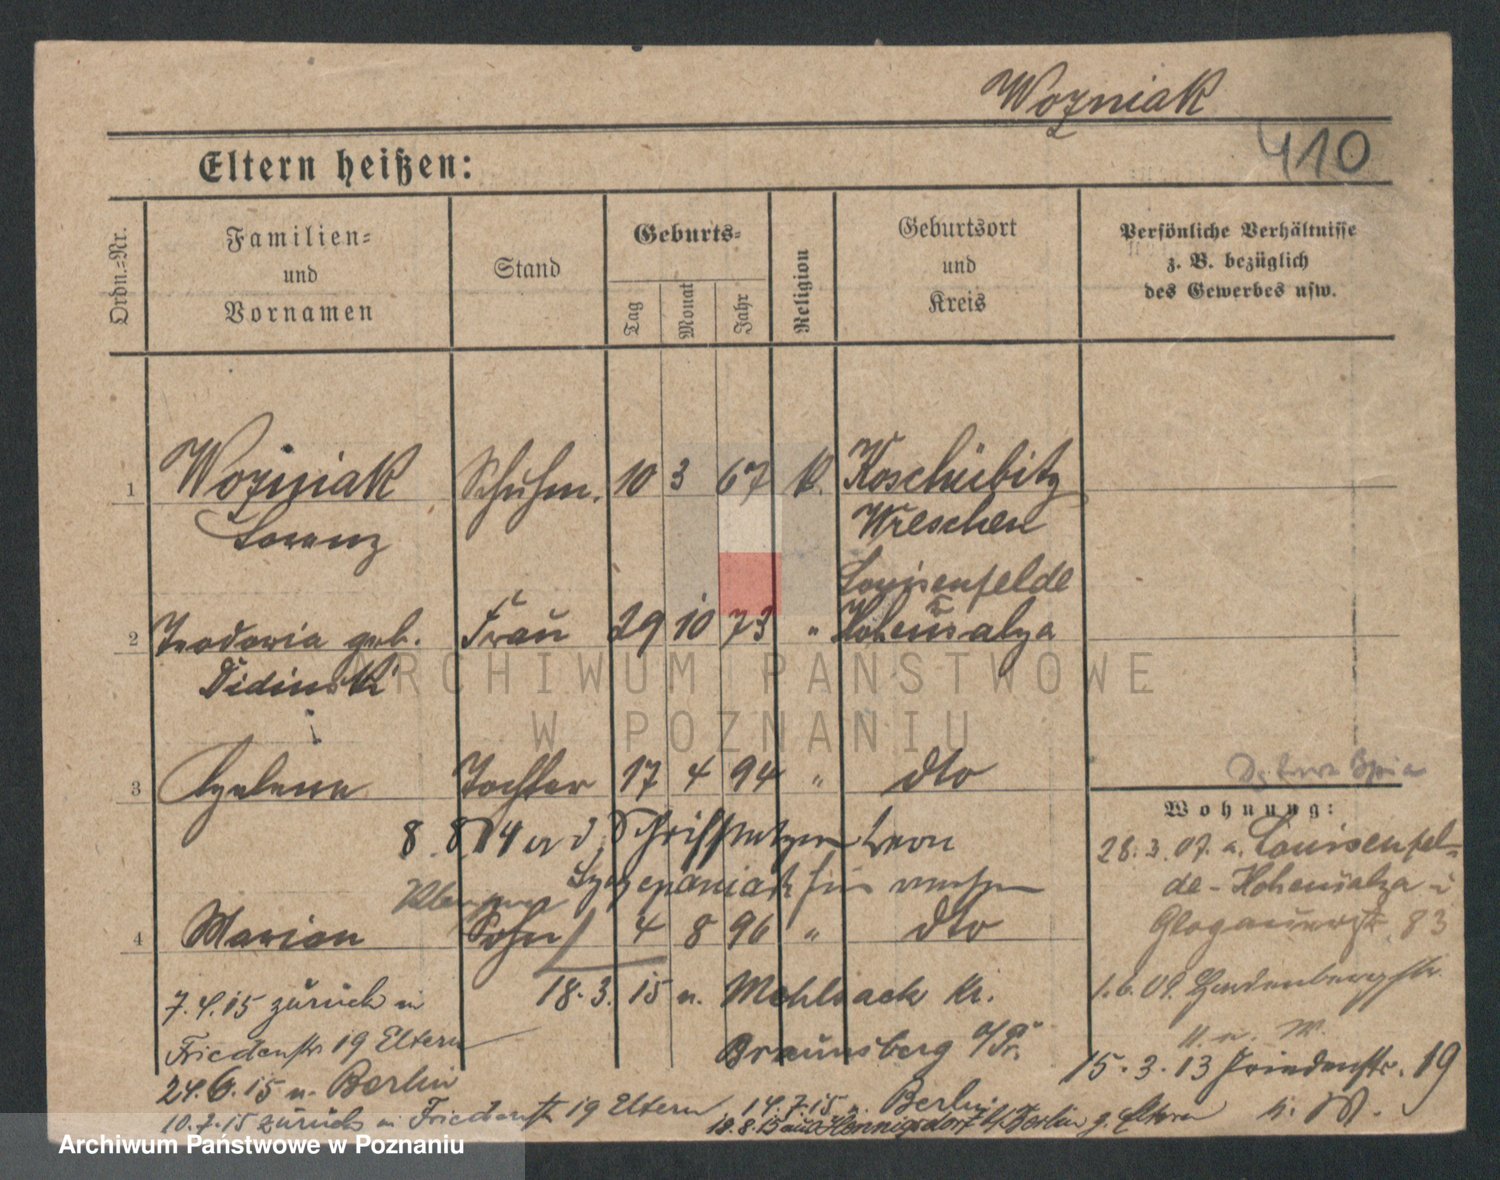 Wozniak
410
Eltern heißen:
Ordn.-Nr.
Familien-
und
Vornamen
Stand
Geburts-
Tag
Monat
Jahr
Religion
Geburtsort
und
Kreis
Persönliche Verhältnisse
z. B. bezüglich
des Gewerbes usw.
1 Wozniak Schuhm. 10 3 67 k. Koschübitz
Lorenz Wreschen
Louisenfelde
2 Teodoria geb. Frau 29 10 73 " Hohensalza
Didinski
3 Helene Tochter 17 4 94 " dto
8. 8 14 Schriftsetzer Leon
Szczepaniak
4 Marian Sohn 4 8 96 " dto
18. 3. 15 n. Mehlsack Kr.
Braunsberg O/Pr.
7.4.15 zurück
Friedenstr 19 Eltern
24.6.15 n. Berlin
10.7.15 zurück n Friedenstr 19 Eltern 14.7.15 n. Berlin
18.8.15 aus Hennigsdorf b/Berlin z. Eltern
Wohnung:
28.3.07. a. Louisenfel-
de - Hohensalza
Glogauerstr. 83
1.6.09.
15.3.13 Friedenstr. 19
ARCHIWUM PAŃSTWOWE
W POZNANIU
Archiwum Państwowe w Poznaniu